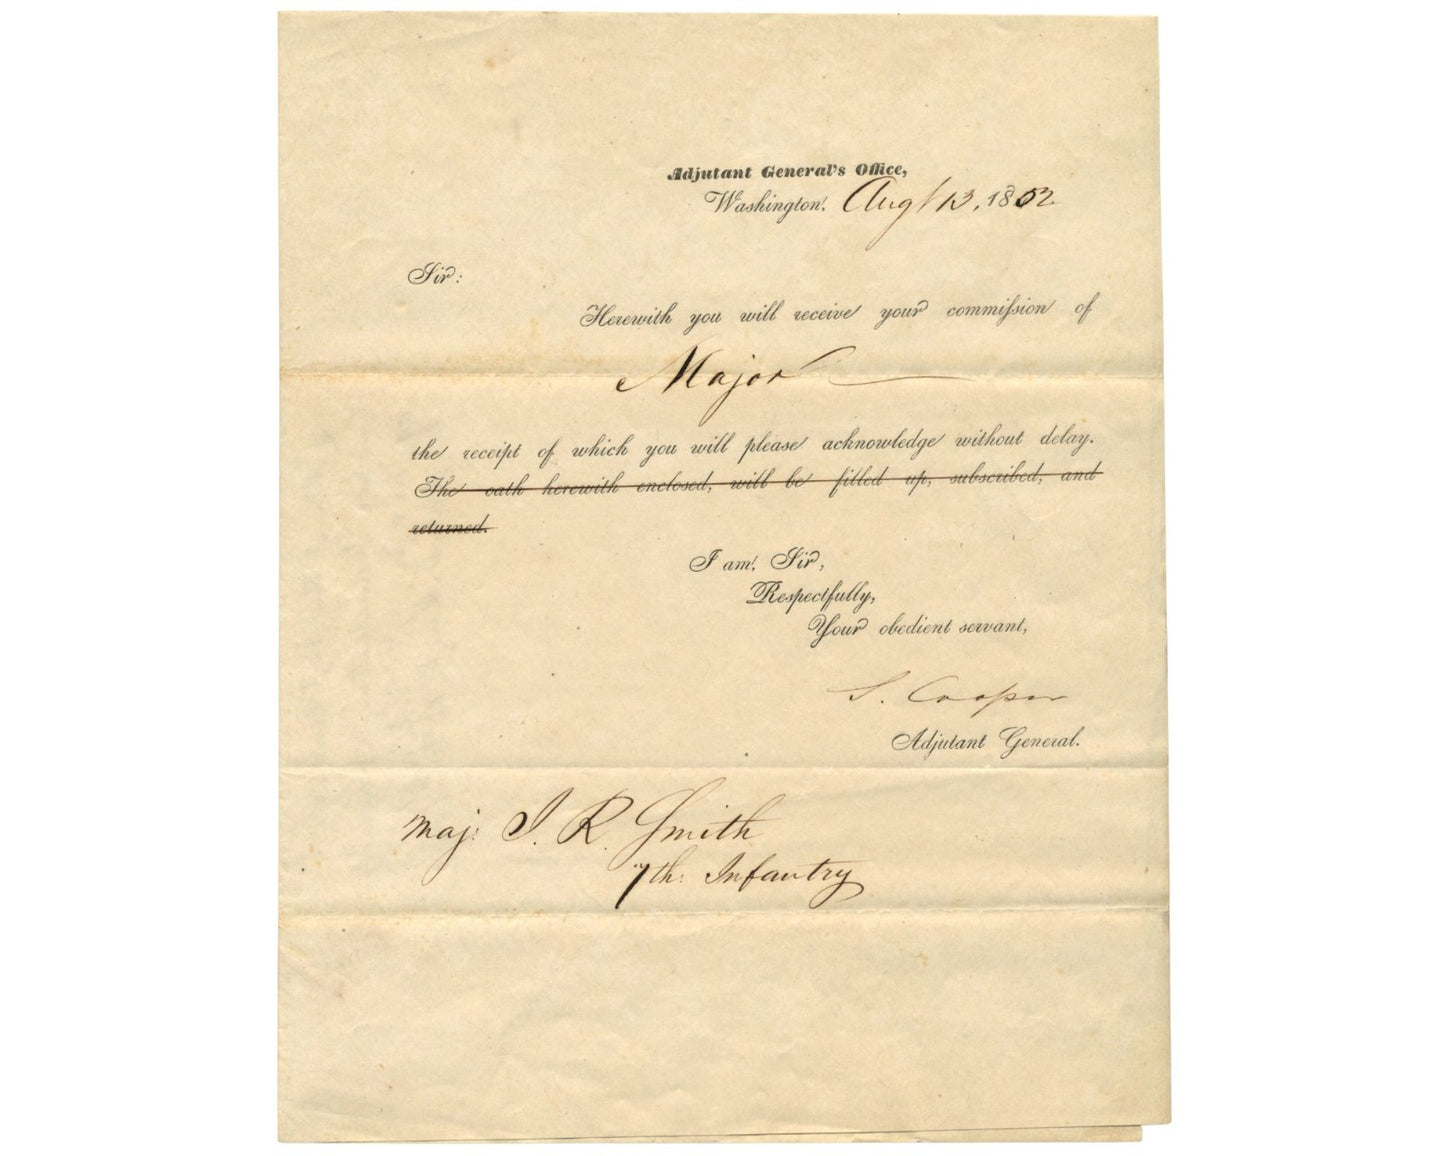 Adjutant General's Office,
Washington, Augt 13, 1852
Sir:
Herewith you will receive your commiſsion of
Major
the receipt of which you will please acknowledge without delay.
The oath herewith enclosed, will be filled up, subscribed, and
returned.
I am, Sir,
Respectfully,
Your obedient servant,
S. Cooper
Adjutant General.
Maj: I. R. Smith
7th: Infantry